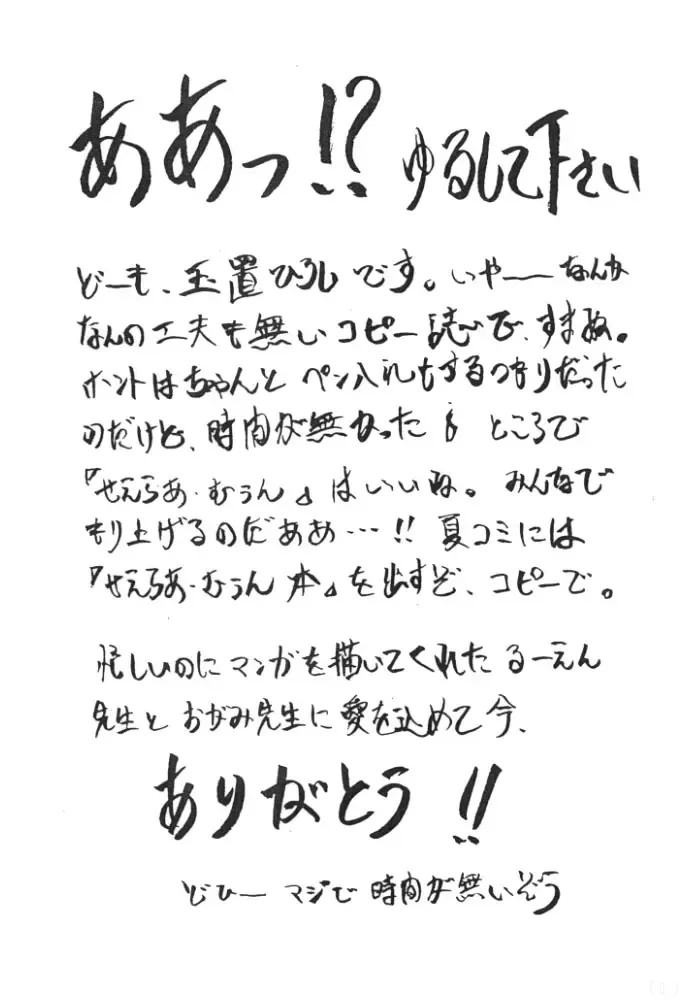 ああっ!? ゆるして下さい
どーも、玉置ひろしです。いやーーなんか
なんの工夫も無いコピー誌で、すまぬ。
ホントはちゃんと ペン入れもするつもりだった
のだけど、時間が無かった ところで
『せえらあ・むうん』はいいね。みんなで
もり上げるのだああ…!! 夏コミには
『せえらあ・むうん 本』を出すぞ、コピーで。
忙しいのにマンガを描いてくれた るーえん
先生と おがみ先生に愛を込めて今、
ありがとう!!
どひー マジで 時間が無いぞう